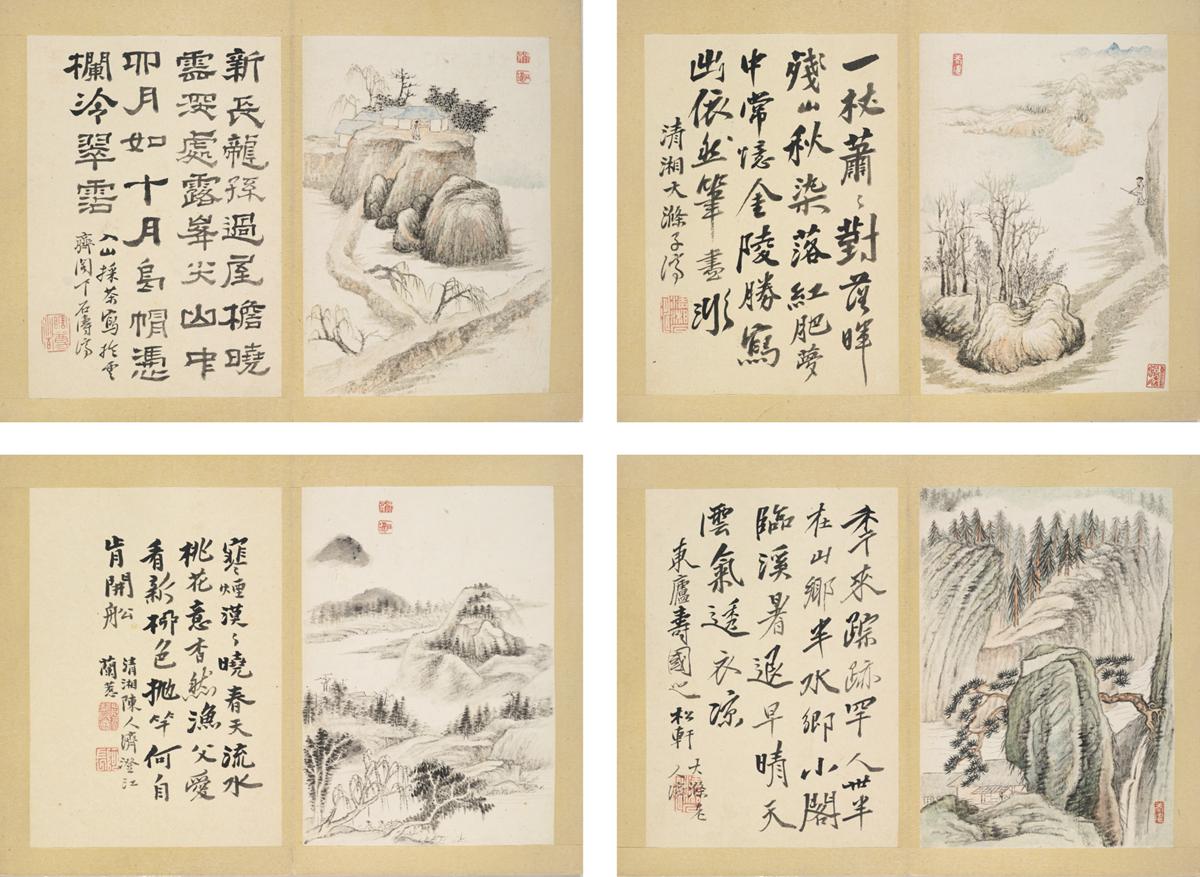 新長龍孫過屋檐曉
雲深處露峯尖山中
四月如十月烏帽憑
欄冷翠霑
入山採茶寫於雲
齊閣下石濤濟
一杖蕭〻對落暉
殘山秋染落紅肥夢
中常憶金陵勝寫
依然筆
清湘大滌子濟
寒煙漠〻曉春天流水
桃花意杳然漁父愛
看新柳色拋竿何自
肯開船
清湘陳人濟澄江
蘭
年來踪跡罕人世半
在山鄉半水鄉小閣
臨溪暑退早晴天
雲氣透衣凉
東廬壽國之松軒
大滌老
人濟